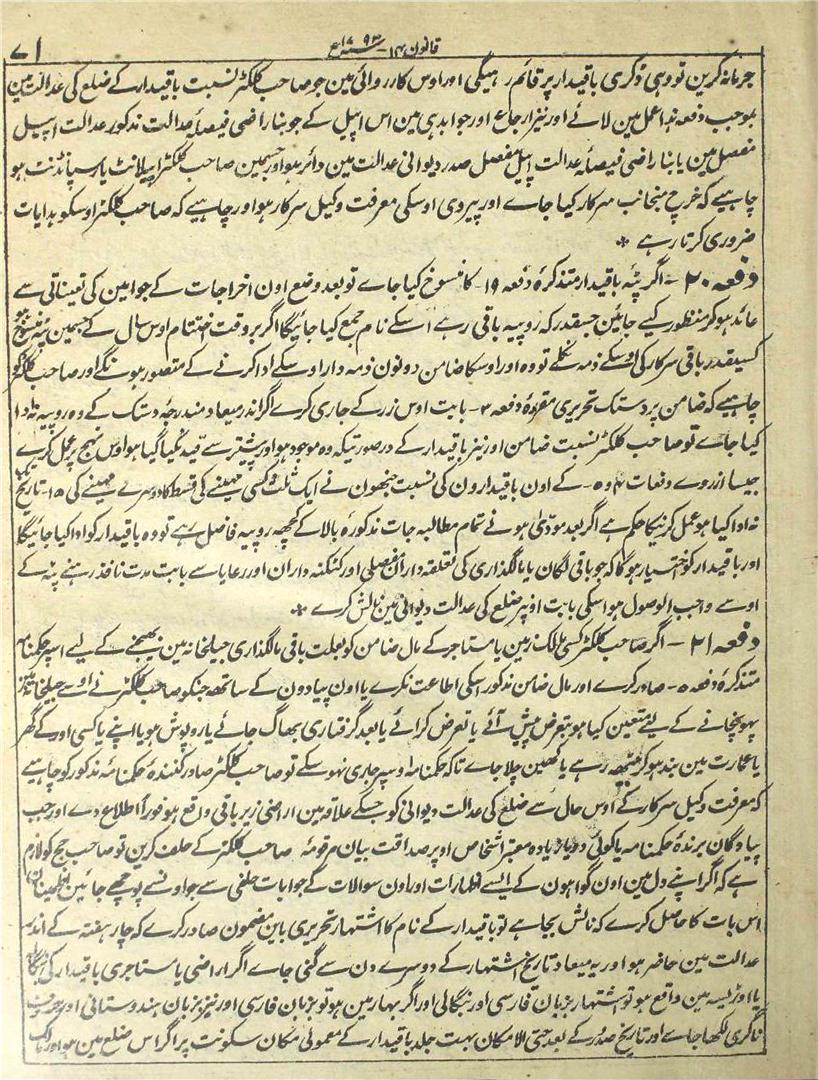 قانون ۱۴ سنہ ۱۷۹۳ع ۷۱
جرمانہ کرین تو وہی ڈگری باقیدار پر قائم رہیگی اور اوس کارروائی مین جو صاحب کلکٹر نسبت باقیدار کے ضلع کی عدالت مین
بموجب دفعہ ہذا عمل مین لائے اور نیز ارجاع اور جوابدہی مین اس اپیل کے جو بناراضی فیصلہ عدالت مذکور عدالت اپیل
مفصل مین یا بناراضی فیصلہ عدالت اپیل مفصل صدر دیوانی عدالت مین دائر ہو اور جسمین صاحب کلکٹر اپیلانٹ یا رسپانڈنٹ ہو
چاہیے کہ خرچ منجانب سرکار کیا جاے اور پیروی اوسکی معرفت وکیل سرکار ہو اور چاہیے کہ صاحب کلکٹر اوسکو ہدایات
ضروری کرتا رہے *
دفعہ ۲۰ - اگر پٹہ باقیدار متذکرۂ دفعہ ۱۹ کا منسوخ کیا جاے تو بعد وضع اون اخراجات کے جو امین کی تعیناتی سے
عائد ہو کر منظور کیے جائین جسقدر کہ روپیہ باقی رہے اسکے نام جمع کیا جائیگا اگر بروقت اختتام اوس سال کے جسمین پٹہ منسوخ ہو
کسیقدر باقی سرکار کی اوسکے ذمہ نکلے تو وہ اور اوسکا ضامن دونون ذمہ دار اوسکے ادا کرنے کے متصور ہونگے اور صاحب کلکٹر کو
چاہیے کہ ضامن پر دستک تحریری مقررۂ دفعہ ۳ - بابت اوس زر کے جاری کرے اگر اندر میعاد مندرجہ دستک کے وہ روپیہ نہ ادا
کیا جاے تو صاحب کلکٹر نسبت ضامن اور نیز باقیدار کے درصورتیکہ وہ موجود ہو اور پیشتر سے قید نکیا گیا ہو اوس نہج پر عمل کرے
جیسا ازروے دفعات ۴ و ۵ - کے اون باقیدارون کی نسبت جنھون نے ایک ثلث کسی مہینے کی قسط کا دوسرے مہینے کی ۱۵ - تاریخ تک
نہ ادا کیا ہو عمل کرنیکا حکم ہے اگر بعد مودیٰ ہونے تمام مطالبہ جات مذکورہ بالا کے کچھہ روپیہ فاضل رہے تو وہ باقیدار کو ادا کیا جائیگا
اور باقیدار کو اختیار ہوگا کہ جو باقی لگان یا مالگذاری کی تعلقہ داران مفصلی اور کٹکنہ داران اور رعایا سے بابت مدت نافذ رہنے پٹہ کے
اوسے واجب الوصول ہو اسکی بابت اونپر ضلع کی عدالت دیوانی مین نالش کرے *
دفعہ ۲۱ - اگر صاحب کلکٹر کسی مالک زمین یا مستاجر کے مال ضامن کو بعلت باقی مالگذاری جیلخانہ مین بھیجنے کے لیے اسپر حکمنامہ
متذکرۂ دفعہ ۵ - صادر کرے اور مال ضامن مذکور اسکی اطاعت نکرے یا اون پیادون کے ساتھ جنکو صاحب کلکٹر نے اوسے جیلخانہ مین
پہونچانے کے لیے متعین کیا ہو بتعرض پیش آئے یا تعرض کرائے یا بعد گرفتاری بھاگ جائے یا روپوش ہو یا اپنے یا کسی اور کے گھر
یا عمارت مین بند ہو کر بیٹھہ رہے یا کھین چلا جاے تاکہ حکمنامہ اوسپر جاری نہوسکے تو صاحب کلکٹر صادر کنندہ حکمنامہ مذکور کو چاہیے
کہ معرفت وکیل سرکار کے اوس حال سے ضلع کی عدالت دیوانی کو جسکے علاقہ مین اراضی زیر باقی واقع ہو فوراً اطلاع دے اور جب
پیادگان برندۂ حکمنامہ یا کوئی دو یا زیادہ معتبر اشخاص اوپر صداقت بیان مرقومہ صاحب کلکٹر کے حلف کرین تو صاحب جج کو لازم
ہے کہ اگر اپنے دل مین اون گواہون کے ایسے اظہارات اور اون سوالات کے جوابات حلفی سے جو اونسے پوچھے جائین اطمینان
اس بات کا حاصل کرے کہ نالش بجا ہے تو باقیدار کے نام کا اشتہار تحریری باین مضمون صادر کرے کہ چار ہفتہ کے اندر
عدالت مین حاضر ہو اور یہ میعاد تاریخ اشتہار کے دوسرے دن سے گنی جاے اگر اراضی یا مستاجری باقیدار کی بنگالہ
یا اوڑیسہ مین واقع ہو تو اشتہار بزبان فارسی اور بنگالی اور اگر بہار مین ہو تو بزبان فارسی اور نیز بزبان ہندوستانی اور بحروف
ناگری لکھا جاے اور تاریخ صدور کے بعد حتی الامکان بہت جلد باقیدار کے معمولی مکان سکونت پر اگر اس ضلع مین ہو اور مالک